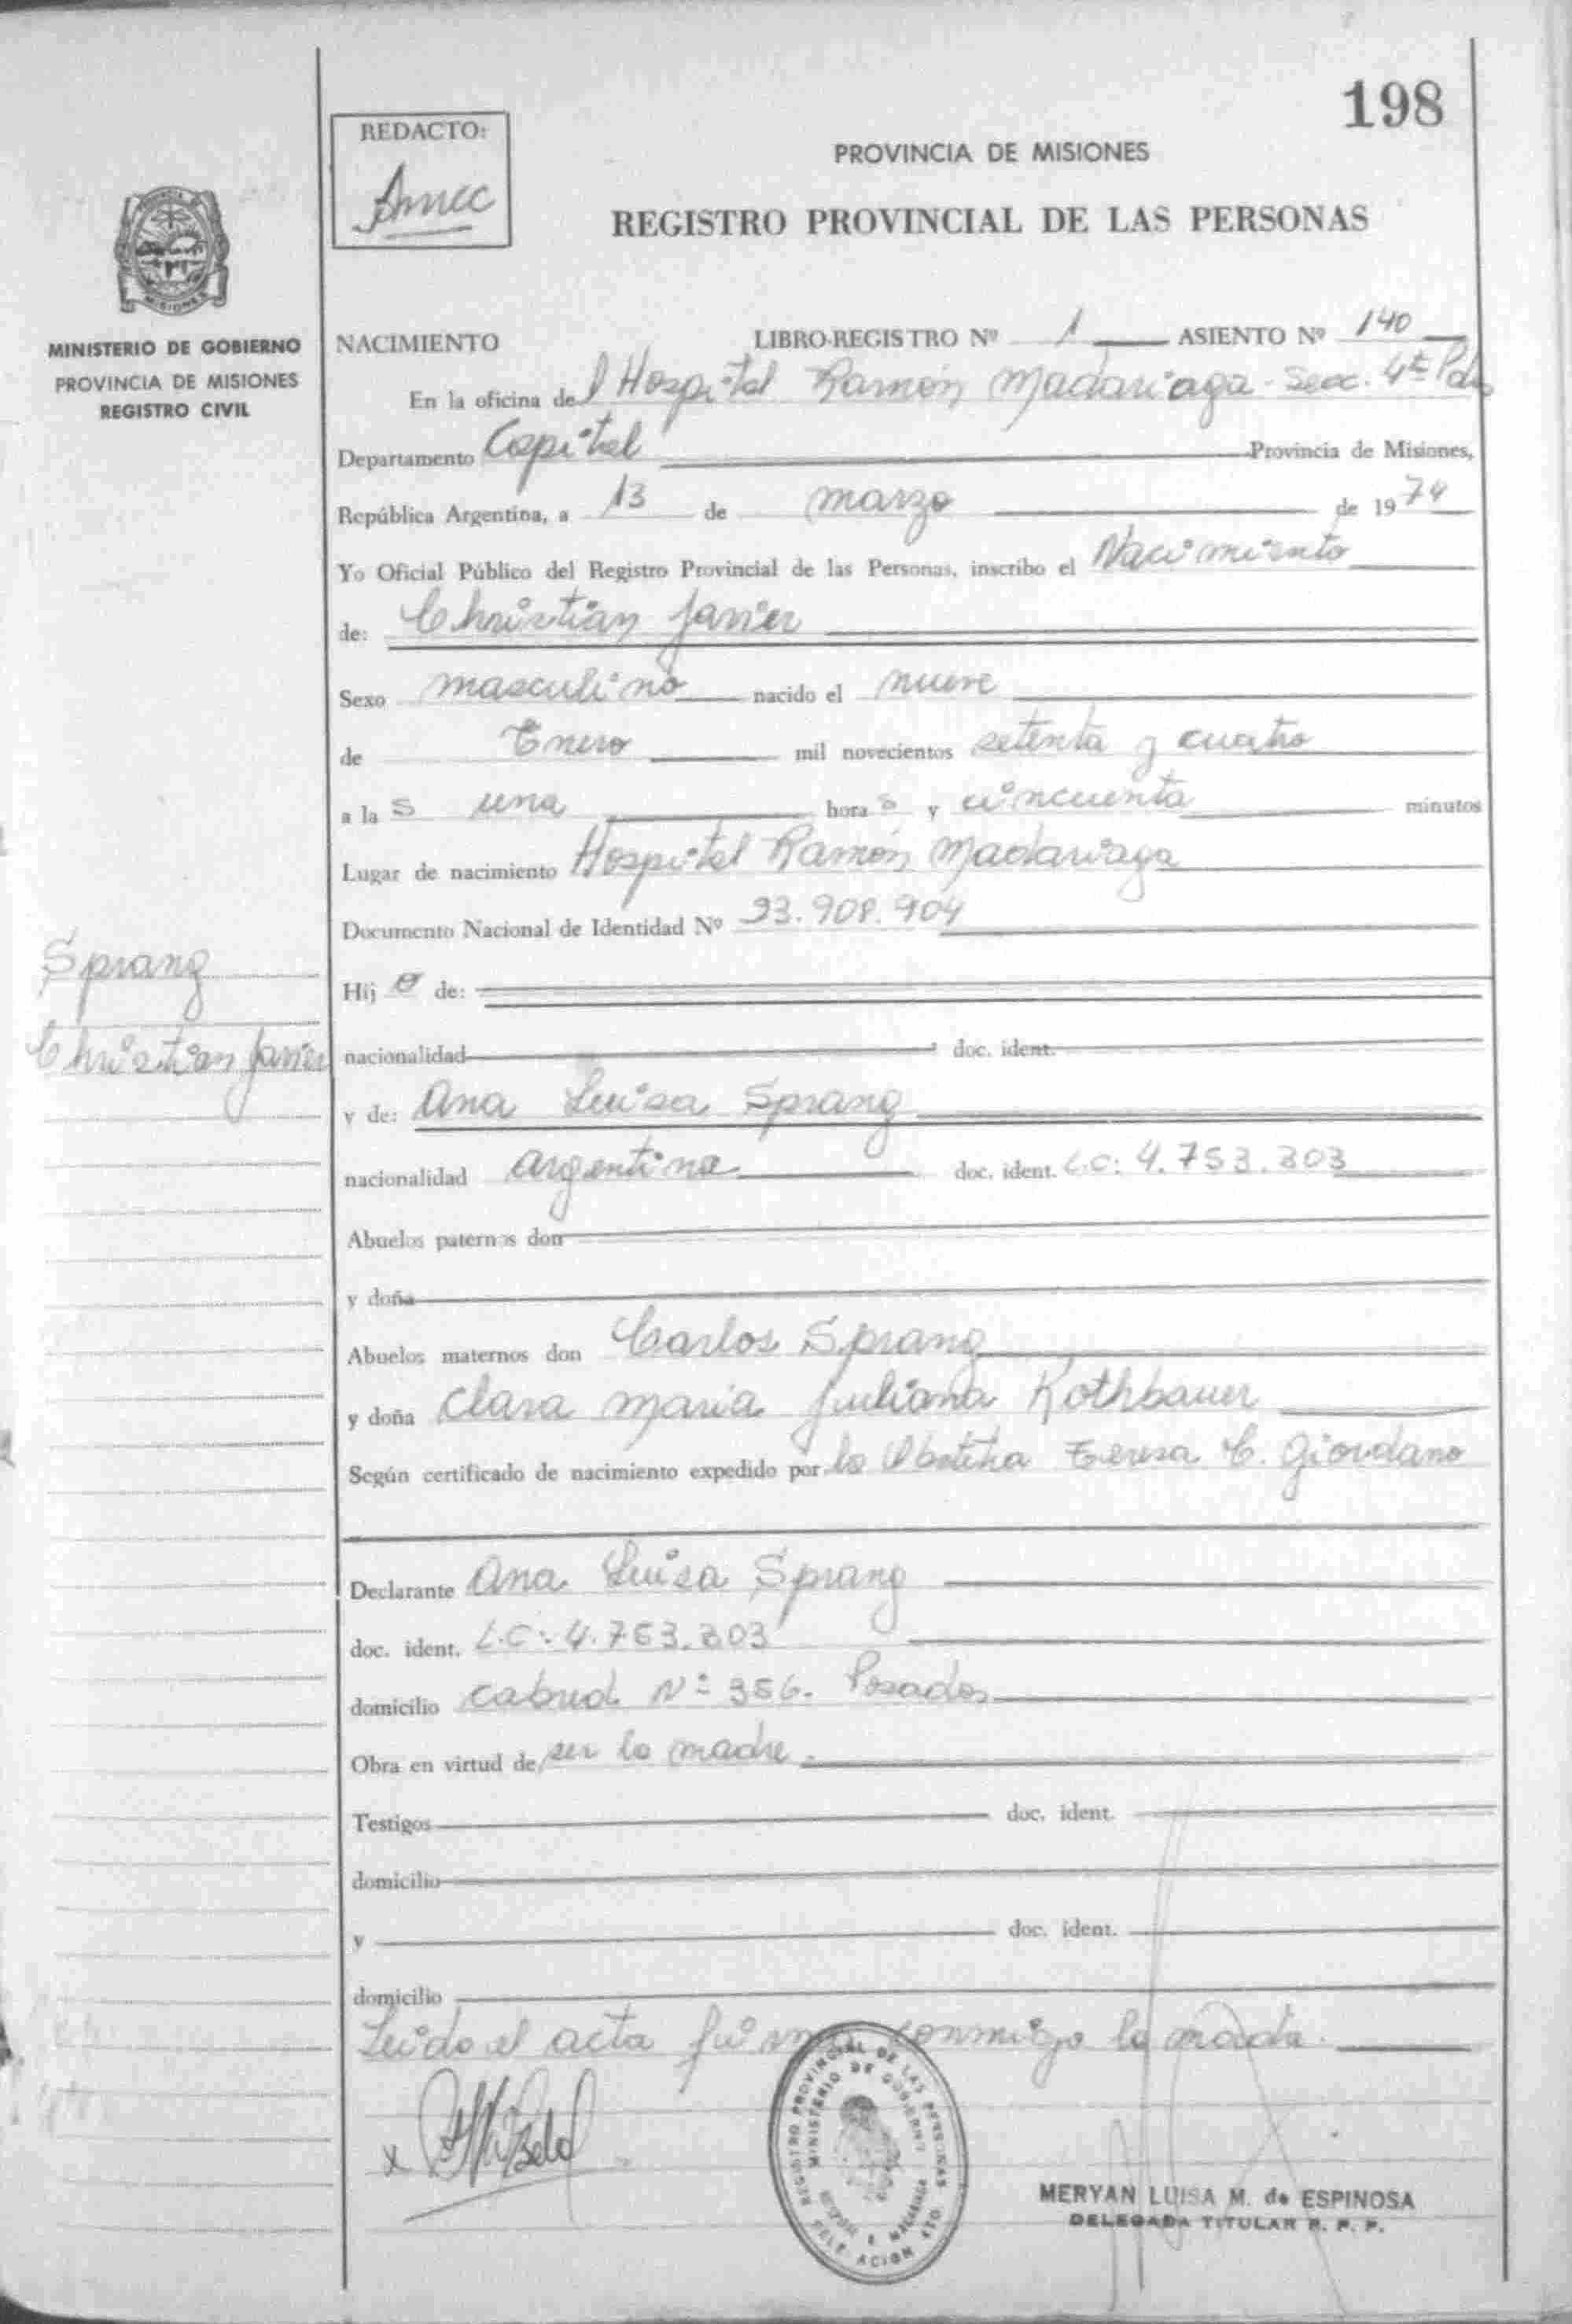 198
REDACTO:
PROVINCIA DE MISIONES
REGISTRO PROVINCIAL DE LAS PERSONAS
MISIONES
MINISTERIO DE GOBIERNO
PROVINCIA DE MISIONES
REGISTRO CIVIL
NACIMIENTO LIBRO-REGISTRO Nº 1 ASIENTO Nº 140
En la oficina del Hospital Ramón Madariaga - Secc. 4ta Pdas
Departamento Capital Provincia de Misiones,
República Argentina, a 13 de marzo de 1974
Yo Oficial Público del Registro Provincial de las Personas, inscribo el Nacimiento
de: Christian Javier
Sexo masculino nacido el nueve
de Enero mil novecientos setenta y cuatro
a las una horas y cincuenta minutos
Lugar de nacimiento Hospital Ramón Madariaga
Documento Nacional de Identidad Nº 23.908.904
Sprang
Christian Javier
Hijo de:
nacionalidad doc. ident.
y de: Ana Luisa Sprang
nacionalidad argentina doc. ident. L.C: 4.753.303
Abuelos paternos don
y doña
Abuelos maternos don Carlos Sprang
y doña Clara Maria Juliana Rothbauer
Según certificado de nacimiento expedido por la Obstetra Teresa C. Giordano
Declarante Ana Luisa Sprang
doc. ident. L.C: 4.753.303
domicilio Cabred Nº 356. Posadas
Obra en virtud de ser la madre.
Testigos doc. ident.
domicilio
y doc. ident.
domicilio
Leido el acta firma conmigo la madre.
REGISTRO PROVINCIAL DE LAS PERSONAS
MINISTERIO DE GOBIERNO
MERYAN LUISA M. de ESPINOSA
DELEGADA TITULAR R. P. P.